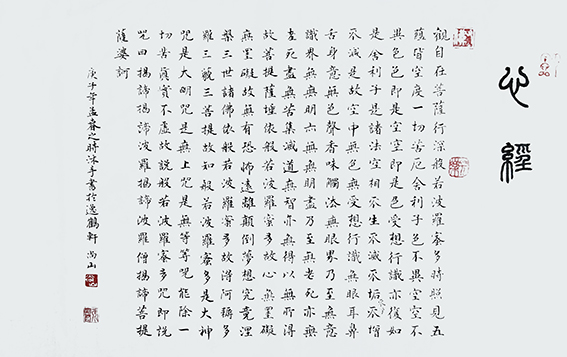 心經
觀自在菩薩行深般若波羅蜜多時照見五
蘊皆空度一切苦厄舍利子色不異空空不
異色色即是空空即是色受想行識亦復如
是舍利子是諸法空相不生不滅不垢不增
不減是故空中無色無受想行識無眼耳鼻
舌身意無色聲香味觸法無眼界乃至無意
識界無無明亦無無明盡乃至無老死亦無
老死盡無苦集滅道無智亦無得以無所得
故菩提薩埵依般若波羅蜜多故心無罣礙
無罣礙故無有恐怖遠離顛倒夢想究竟涅
槃三世諸佛依般若波羅蜜多故得阿耨多
羅三藐三菩提故知般若波羅蜜多是大神
咒是大明咒是無上咒是無等等咒能除一
切苦真實不虛故說般若波羅蜜多咒即說
咒曰揭諦揭諦波羅揭諦波羅僧揭諦菩提
薩婆訶
庚子年孟春之時沐手書於逸鶴軒 尚山